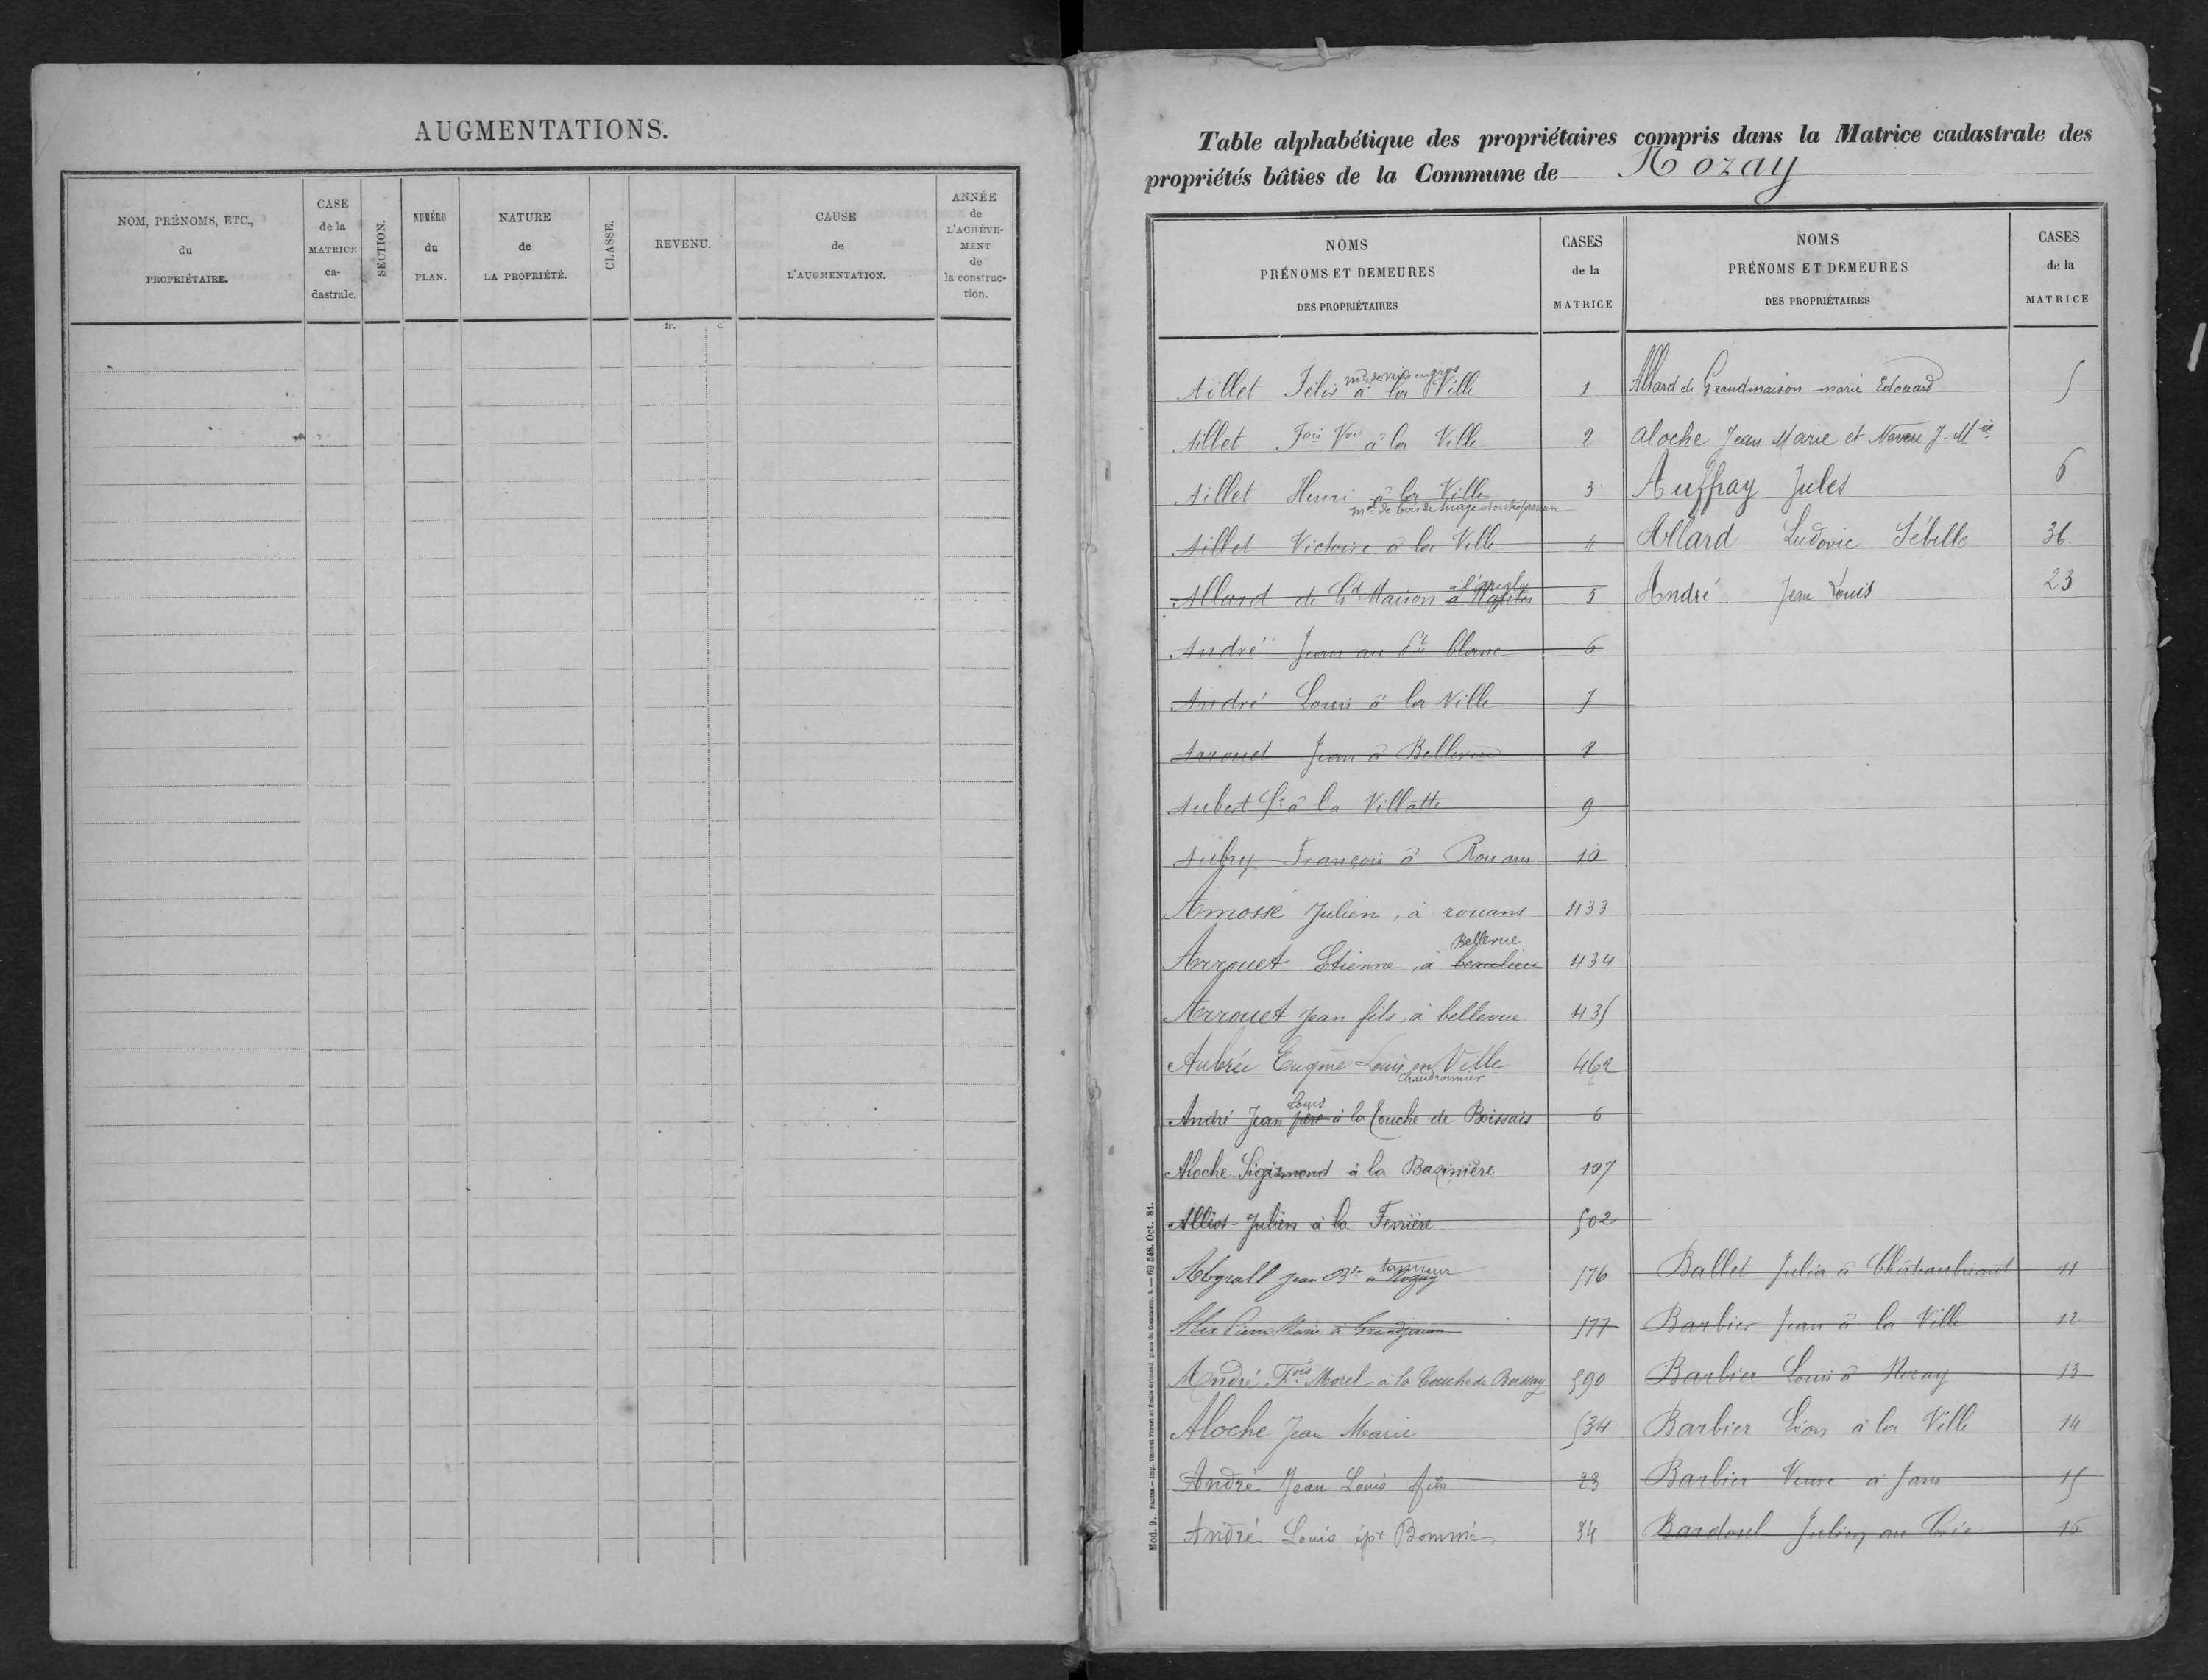 AUGMENTATIONS.
NOM, PRÉNOMS, ETC.,
du
PROPRIÉTAIRE.
CASE
de la
MATRICE
ca-
dastrale.
SECTION.
NUMÉRO
du
PLAN.
NATURE
de
LA PROPRIÉTÉ.
CLASSE.
REVENU.
CAUSE
de
L'AUGMENTATION.
ANNÉE
de
L'ACHÈVE-
MENT
de
la construc-
tion.
fr. c.
Table alphabétique des propriétaires compris dans la Matrice cadastrale des
propriétés bâties de la Commune de Nozay
NOMS
PRÉNOMS ET DEMEURES
DES PROPRIÉTAIRES
CASES
de la
MATRICE
NOMS
PRÉNOMS ET DEMEURES
DES PROPRIÉTAIRES
CASES
de la
MATRICE
md de vins en gros
Aillet Félix à la Ville 1
Aillet Fois Vve à la Ville 2
Aillet Henri à la Ville 3
md de bois de sciage
Aillet Victoire à la Ville 4
Allard de Gd Maison à Nantes 5
André Jean au blanc 6
André Louis à la Ville 7
Arrouet Jean à Bellevue 8
Aubert à la Villatte 9
Aubry François à Rouans 10
Amossé Julien, à rouans 433
Bellevue
Arrouet Etienne, à beaulieu 434
Arrouet Jean fils, à bellevue 435
Aubrée Eugène Louis en Ville 462
Chaudronnier
Louis
André Jean père à la Touche de Boissais 6
Aloche Sigismond à la Bazinière 107
Alliot Julien à la Ferrière 502
tanneur
Abgrall Jean Bte à Nozay 576
Alix Pierre Marie à Grandjouan 577
André Fois Morel à la Touche de Boissay 590
Aloche Jean Marie 534
André Jean Louis fils 23
André Louis épx Bommé 34
Allard de Grandmaison marie Edouard 5
Aloche Jean Marie et Neveu J. Mie
Auffray Jules 6
Allard Ludovic Sébille 36
André Jean Louis 23
Ballet Julia à Châteaubriant 11
Barbier Jean à la Ville 12
Barbier Louis à Nozay 13
Barbier Léon à la Ville 14
Barbier Veuve à Jans 15
Bardoul Julien au 16
Mod. 9. Nantes.— Imp. Vincent Forest et Émile Grimaud, place du Commerce, 4. — 69 548. Oct. 81.